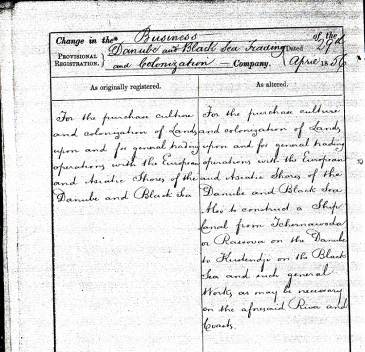 Change in the* Business of the
PROVISIONAL REGISTRATION. } Danube and Black Sea Trading and Colonization — Company. } Dated 29th April 1856
As originally registered.
For the purchase culture
and colonization of Lands
upon and for general trading
operations with the European
and Asiatic Shores of the
Danube and Black Sea
As altered.
For the purchase culture
and colonization of Lands
upon and for general trading
operations with the European
and Asiatic Shores of the
Danube and Black Sea
Also to construct a Ship
Canal from Tchernawoda
or Rassova on the Danube
to Kustendje on the Black
Sea and such general
Works as may be necessary
on the aforesaid River and
Coasts.